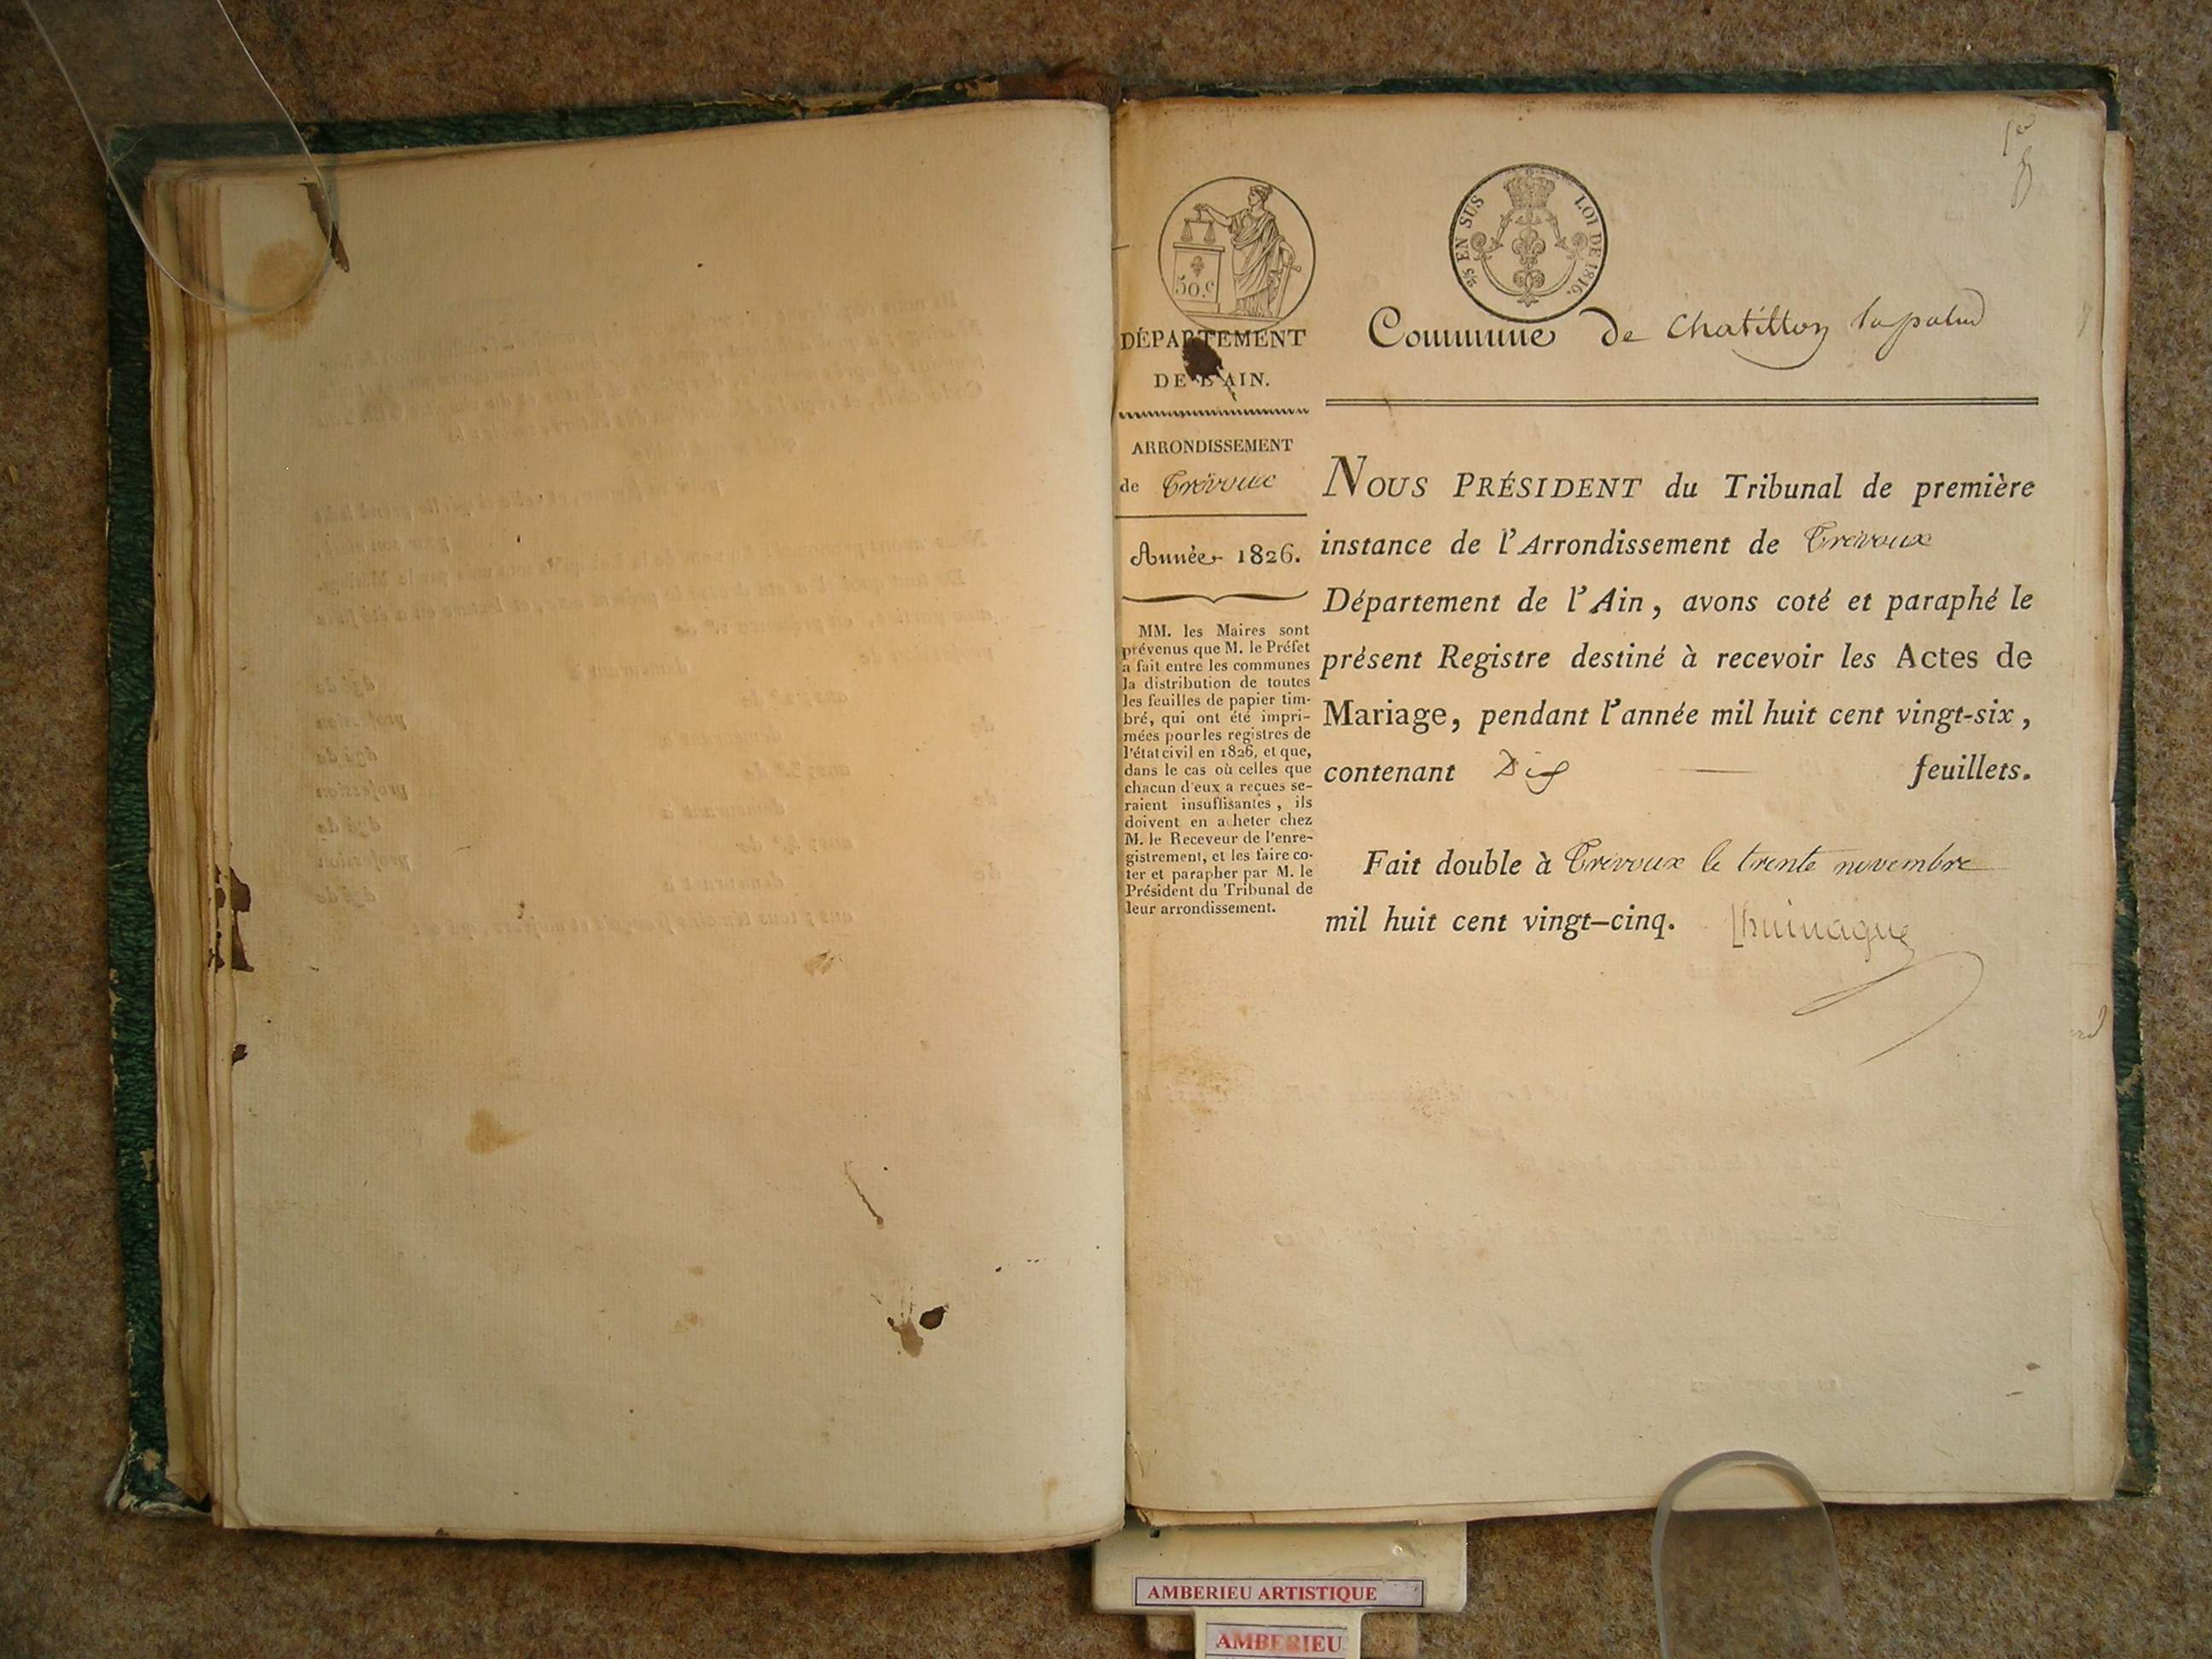 50.c
2/5 EN SUS LOI DE 1816.
DÉPARTEMENT
DE L'AIN.
Commune de Chatillon lapalud
ARRONDISSEMENT
de Trévoux
Année 1826.
MM. les Maires sont
prévenus que M. le Préfet
a fait entre les communes
la distribution de toutes
les feuilles de papier tim-
bré, qui ont été impri-
mées pour les registres de
l'état civil en 1826, et que,
dans le cas où celles que
chacun d'eux a reçues se-
raient insuffisantes, ils
doivent en acheter chez
M. le Receveur de l'enre-
gistrement, et les faire co-
ter et parapher par M. le
Président du Tribunal de
leur arrondissement.
NOUS PRÉSIDENT du Tribunal de première
instance de l'Arrondissement de Trévoux
Département de l'Ain, avons coté et paraphé le
présent Registre destiné à recevoir les Actes de
Mariage, pendant l'année mil huit cent vingt-six,
contenant Dix feuillets.
Fait double à Trévoux le trente novembre
mil huit cent vingt-cinq.
AMBERIEU ARTISTIQUE
AMBERIEU